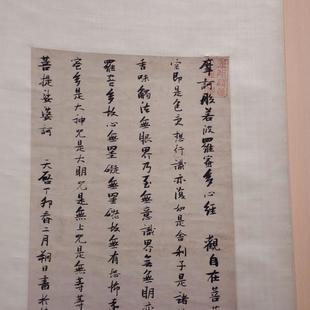 摩訶般若波羅蜜多心經 觀自在菩
空即是色受想行識亦復如是舍利子是諸
香味觸法無眼界乃至無意識界無無明亦
羅蜜多故心無罣礙無罣礙故無有恐怖
蜜多是大神咒是大明咒是無上咒是無等等
菩提娑婆訶 天啓丁卯春二月 日書於